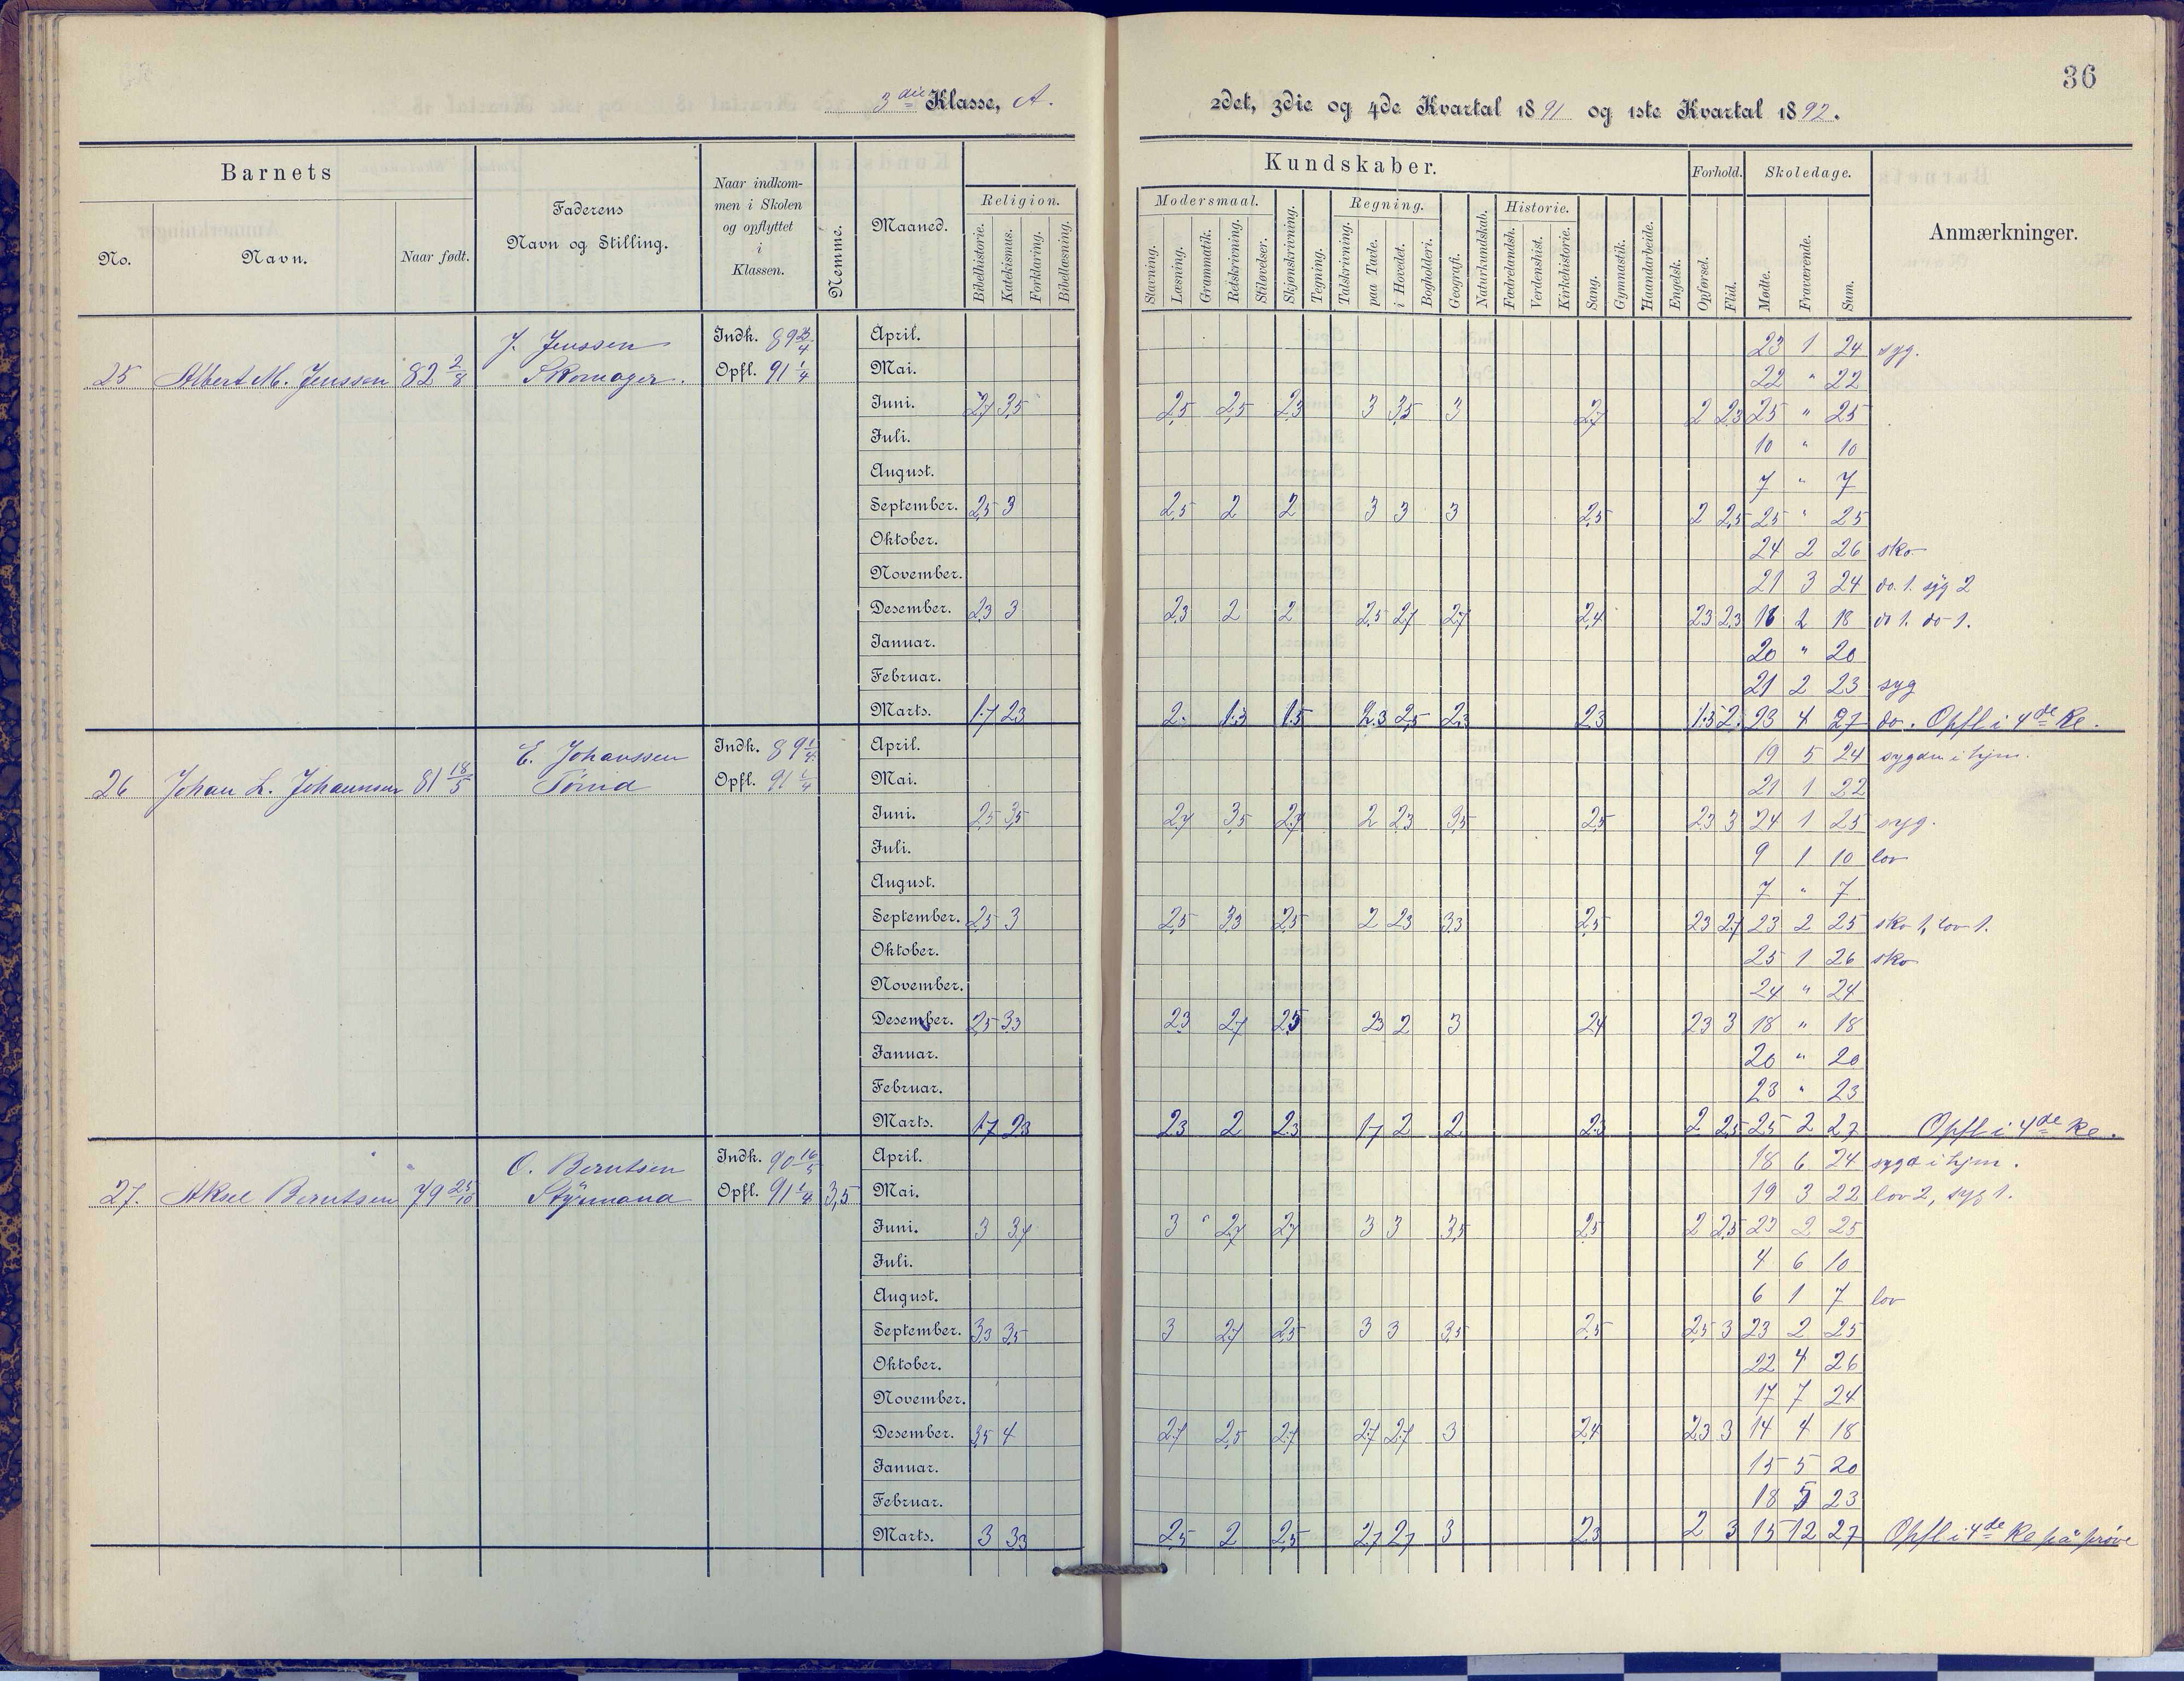 36
3die Klasse, A.
2det, 3die og 4de Kvartal 1891 og 1ste Kvartal 1892.
Barnets
No.
Navn.
Naar født.
Faderens
Navn og Stilling.
Naar indkom-
men i Skolen
og opflyttet
i
Klassen.
Nemme.
Maaned.
Kundskaber.
Religion.
Bibelhistorie.
Katekismus.
Forklaring.
Bibellæsning.
Modersmaal.
Stavning.
Læsning.
Grammatik.
Retskrivning.
Stiløvelser.
Skjønskrivning.
Tegning.
Regning.
Talskrivning.
paa Tavle.
i Hovedet.
Bogholderi.
Geografi.
Naturkundskab.
Historie.
Fædrelandsh.
Verdenshist.
Kirkehistorie.
Sang.
Gymnastik.
Haandarbeide.
Engelsk.
Forhold.
Opførsel.
Flid.
Skoledage.
Mødte.
Fraværende.
Sum.
Anmærkninger.
25 Albert M. Jenssen 82 2/8 J. Jenssen Skomager. Indk. 89 Opfl. 91 1/4
April. 23 1 24 syg.
Mai. 22 " 22
Juni. 2,7 3,5 2,5 2,5 2,3 3 3,5 3 2,7 2 2,3 25 " 25
Juli. 10 " 10
August. 7 " 7
September. 2,5 3 2,5 2 2 3 3 3 2,5 2 2,5 25 " 25
Oktober. 24 2 26 sko
November. 21 3 24 do. 1. syg 2
Desember. 2,3 3 2,3 2 2 2,5 2,7 2,7 2,4 2,3 2,3 16 2 18 do 1. do 1.
Januar. 20 " 20
Februar. 21 2 23 syg
Marts. 1.7 2,3 2. 1.3 1.5 2.3 2,5 2,3 2,3 1.3 2. 23 4 27 do. Opfl i 4de Kl.
26 Johan L. Johannsen 81 18/5 E. Johanssen Indk. 89 1/4 Opfl. 91 1/4
April. 19 5 24 sygdm i hjm.
Mai. 21 1 22
Juni. 2,5 3,5 2,7 3,5 2,7 2 2,3 3,5 2,5 2,3 3 24 1 25 syg.
Juli. 9 1 10 lov
August. 7 " 7
September. 2,5 3 2,5 3,3 2,5 2 2,3 3,3 2,5 2,3 2,7 23 2 25 sko 1, lov 1.
Oktober. 25 1 26 sko
November. 24 " 24
Desember. 2,5 3,3 2,3 2,7 2,5 2,3 2 3 2,4 2,3 3 18 " 18
Januar. 20 " 20
Februar. 23 " 23
Marts. 1.7 2,3 2,3 2 2,3 1,7 2 2 2,3 2 2,5 25 2 27 Opfl i 4de Kl.
27. Aksel Berntsen 79 25/10 O. Berntsen Styrmand Indk. 90 16/5 Opfl. 91 1/4 3,5
April. 18 6 24 sygd i hjm.
Mai. 19 3 22 lov 2, syg 1.
Juni. 3 3,7 3 2,7 2,7 3 3 3,5 2,5 2 2,5 23 2 25
Juli. 4 6 10
August. 6 1 7 lov
September. 3,3 3,5 3 2,7 2,5 3 3 3,5 2,5 2,5 3 23 2 25
Oktober. 22 4 26
November. 17 7 24
Desember. 3,5 4 2,7 2,5 2,7 2,7 2,7 3 2,4 2,3 3 14 4 18
Januar. 15 5 20
Februar. 18 5 23
Marts. 3 3,3 2,5 2 2,5 2,7 2,7 3 2,3 2 3 15 12 27 Opfl i 4de Kl på prøve